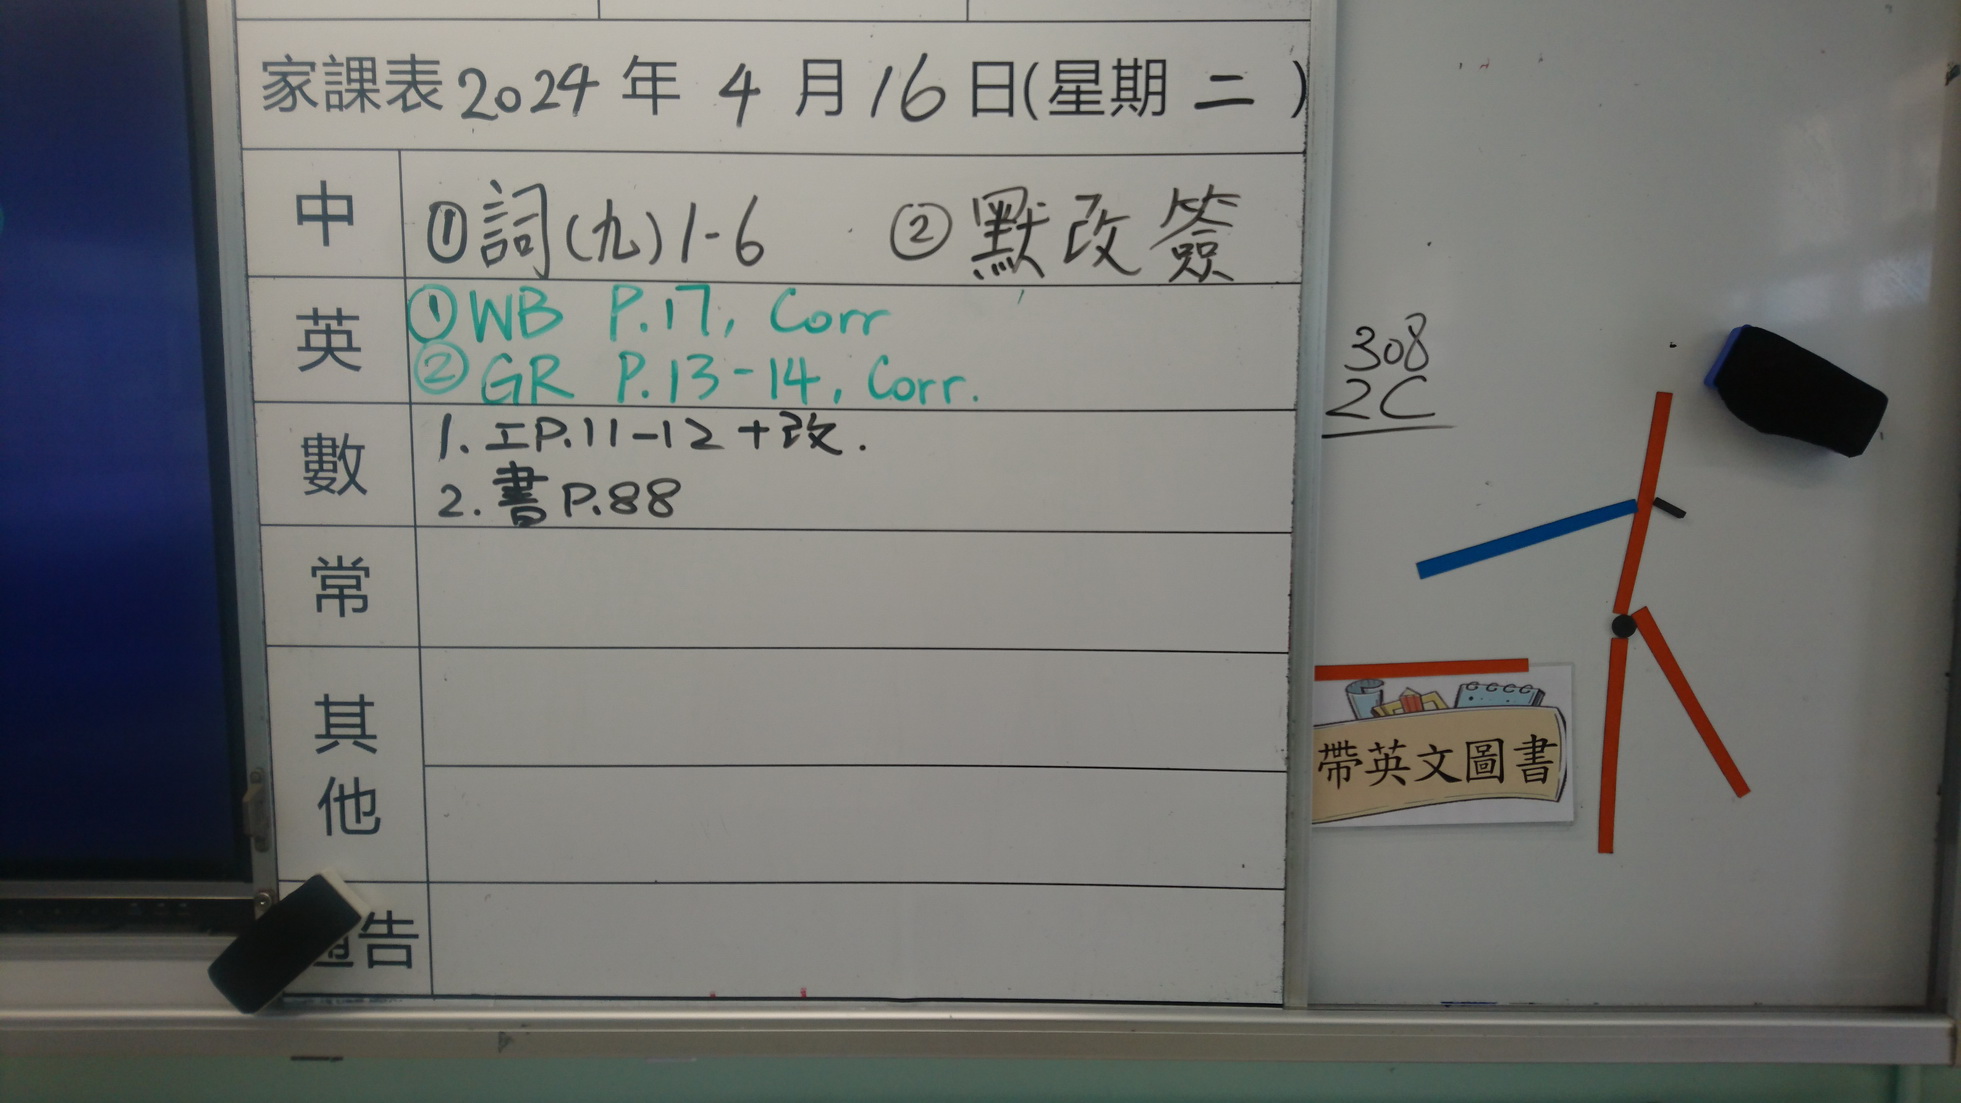 家課表 2024 年 4 月 16 日(星期 二 )
中 ①詞(九)1-6 ②默改簽
英 ①WB P.17, Corr
②GR P.13-14, Corr.
數 1. 工P.11-12 +改.
2. 書P.88
常
其他
告
308
2C
帶英文圖書